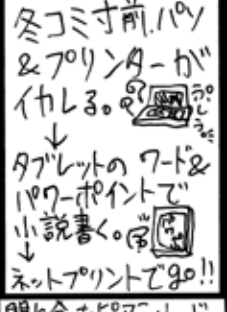 冬コミ寸前、パソ
&プリンターが
イカレる。
↓
タブレットの ワード&
パワーポイントで
小説書く。
↓
ネットプリントでgo!!